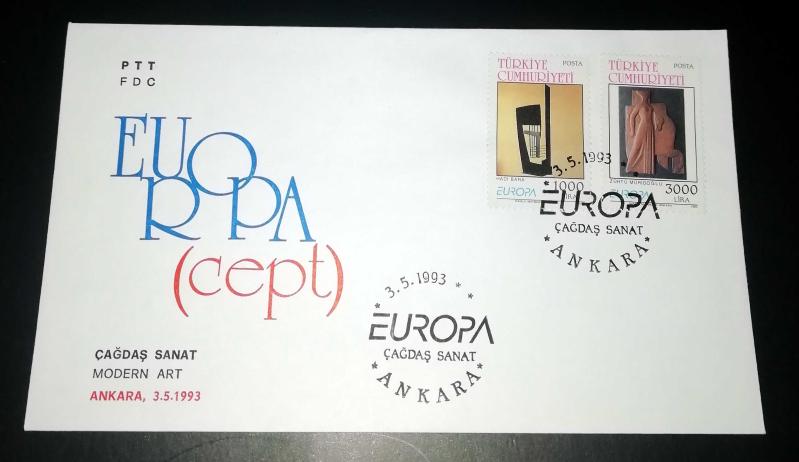 PTT
FDC
EUROPA
(cept)
ÇAĞDAŞ SANAT
MODERN ART
ANKARA, 3.5.1993
TÜRKİYE POSTA
CUMHURİYETİ
HADİ BARA
EUROPA 1000
LİRA
TÜRKİYE POSTA
CUMHURİYETİ
ZÜHTÜ MÜRİDOĞLU
EUROPA 3000
LİRA
3.5.1993
EUROPA
ÇAĞDAŞ SANAT
ANKARA
3.5.1993
EUROPA
ÇAĞDAŞ SANAT
ANKARA